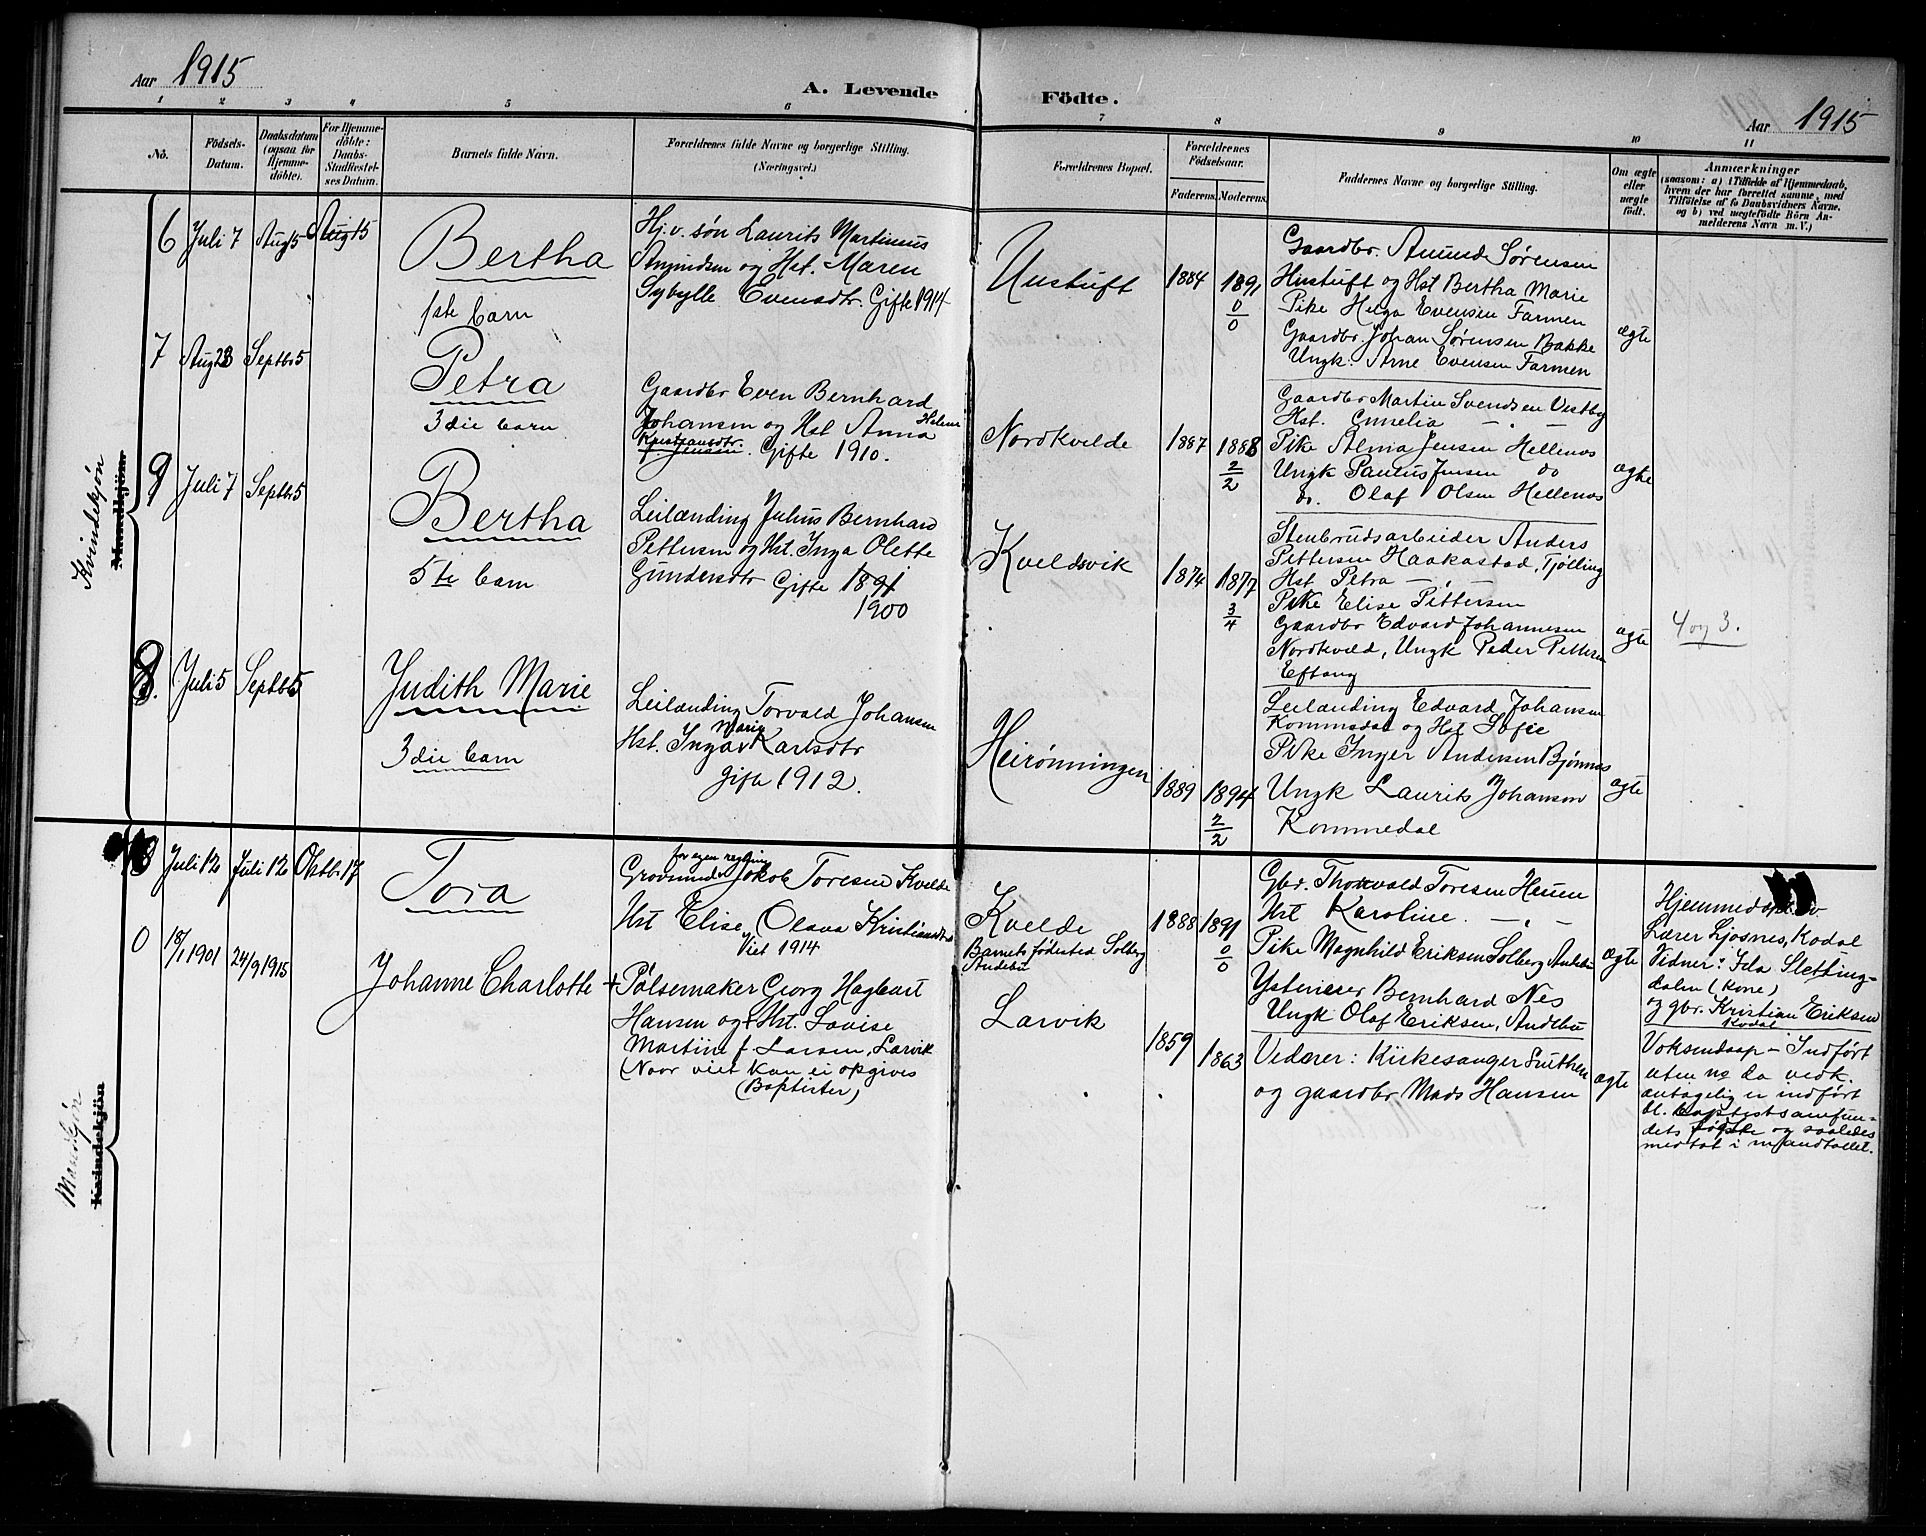 Aar 1915
A. Levende Födte.
Aar 1915
1 2 3 4 5 6 7 8 9 10 11
No.
Födsels-
Datum.
Daabsdatum
(ogsaa for
Hjemme-
döbte).
For Hjemme-
döbte:
Daabs-
Stadfæstel-
ses Datum.
Barnets fulde Navn.
Forældrenes fulde Navne og borgerlige Stilling.
(Næringsvei.)
Forældrenes Bopæl.
Forældrenes
Födselsaar.
Faderens. Moderens.
Faddernes Navne og borgerlige Stilling.
Om ægte
eller
uægte
födt.
Anmærkninger
(saasom: a) i Tilfælde af Hjemmedaab,
hvem der har forrettet samme, med
Tilföielse af to Daabsvidners Navne,
og b) ved uægtefödte Börn An-
melderens Navn m. V.)
Kvindekjøn
Mandkjön
6 Juli 7 Aug 15 Aug 15
Bertha
1ste barn
Hj.v. søn Laurits Martinius
Amundsen og Hst. Maren
Sybylle Evensdtr. Gifte 1914
Unstuft
1884 1891
0/0
Gaardbr. Amund Sørensen
Hustuft og Hst Bertha Marie
Pike Helga Evensen Farmen
Gaardbr. Johan Sørensen Bakke
Ungk. Arne Evensen Farmen
ægte
7 Aug 23 Septbr 5
Petra
3die barn
Gaardbr Even Bernhard
Johansen og Hst Anna Helene
Kristiansdtr.
f. Jensen. Gifte 1910.
Nordkvelde
1887 1888
2/2
Gaardbr Martin Svendsen Vestby
Hst. — " —
Pike Alma Jensen Hellenes
Ungk Paulus Jensen do
do. Olaf Olsen Hellenes
ægte
9 Juli 7 Septbr 5
Bertha
5te barn
Leilænding Julius Bernhard
Pettersen og Hst. Inga Olette
Gundersdtr Gifte 1891
1900
Kveldsvik
1874 1877
3/4
Stenbrudsarbeider Anders
Pettersen Haakastad, Tjølling
Hst Petra — " —
Pike Elise Pettersen
Gaardbr Edvard Johannesen
Nordkveld, Ungk Peder Pettersen
Eftang
ægte
4 og 3.
8. Juli 5 Septbr 5
Judith Marie
3die barn
Leilænding Torvald Johansen
Hst. Inga Marie Karlsdtr
Gifte 1912.
Heirønningen
1889 1894
2/2
Leilænding Edvard Johansen
Kommedal og Hst Sofie
Pike Inger Andersen Bjønnes
Ungk Laurits Johansen
Kommedal
ægte
Mandkjøn
Kvindekjön
Juli 12 Juli 12 Oktbr 17
Tora
for egen regning
Grovsmed Jakob Toresen Kvelde
Hst Elise Olava Kristiansdtr
Viet 1914
Kvelde
Barnets fødested Solberg
Andebu
1888 1891
0/0
Gbr. Thorvald Toresen Heum
Hst Karoline. — " —
Pike Magnhild Eriksen Solberg Andebu
Bernhard Nes
Ungk Olaf Eriksen, Andebu
ægte
Hjemmedøpt av
Lærer Ljosnes, Kodal
Vidner: Ida Sletting-
dalen (kone)
og gbr. Kristian Eriksen
Kodal
0 18/1 1901 24/9 1915
Johanne Charlotte
+ Pølsemaker Georg Hagbart
Hansen og Hst. Lovise
Martine f. Larsen, Larvik
(Naar viet kan ei opgives
(Baptister)
Larvik
1859 1863
Vidner: Kirkesanger
og gaardbr Mads Hansen
ægte
Voksendaap — Indført
uten no da vedk.
antagelig er indført
bl. baptistsamfun-
dets fødte og saaledes
medtat i mandtallet.